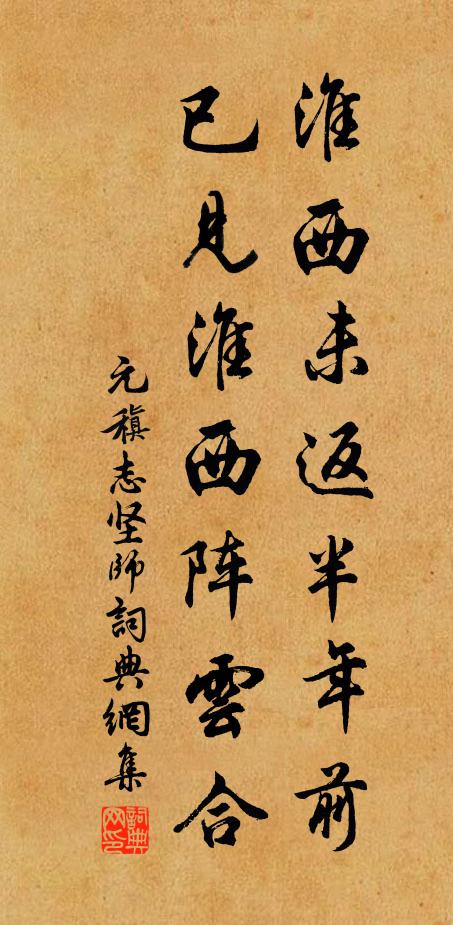 淮西未返半年前
已見淮西阵雲合
元稹志坚師詞典網集
詞典网印